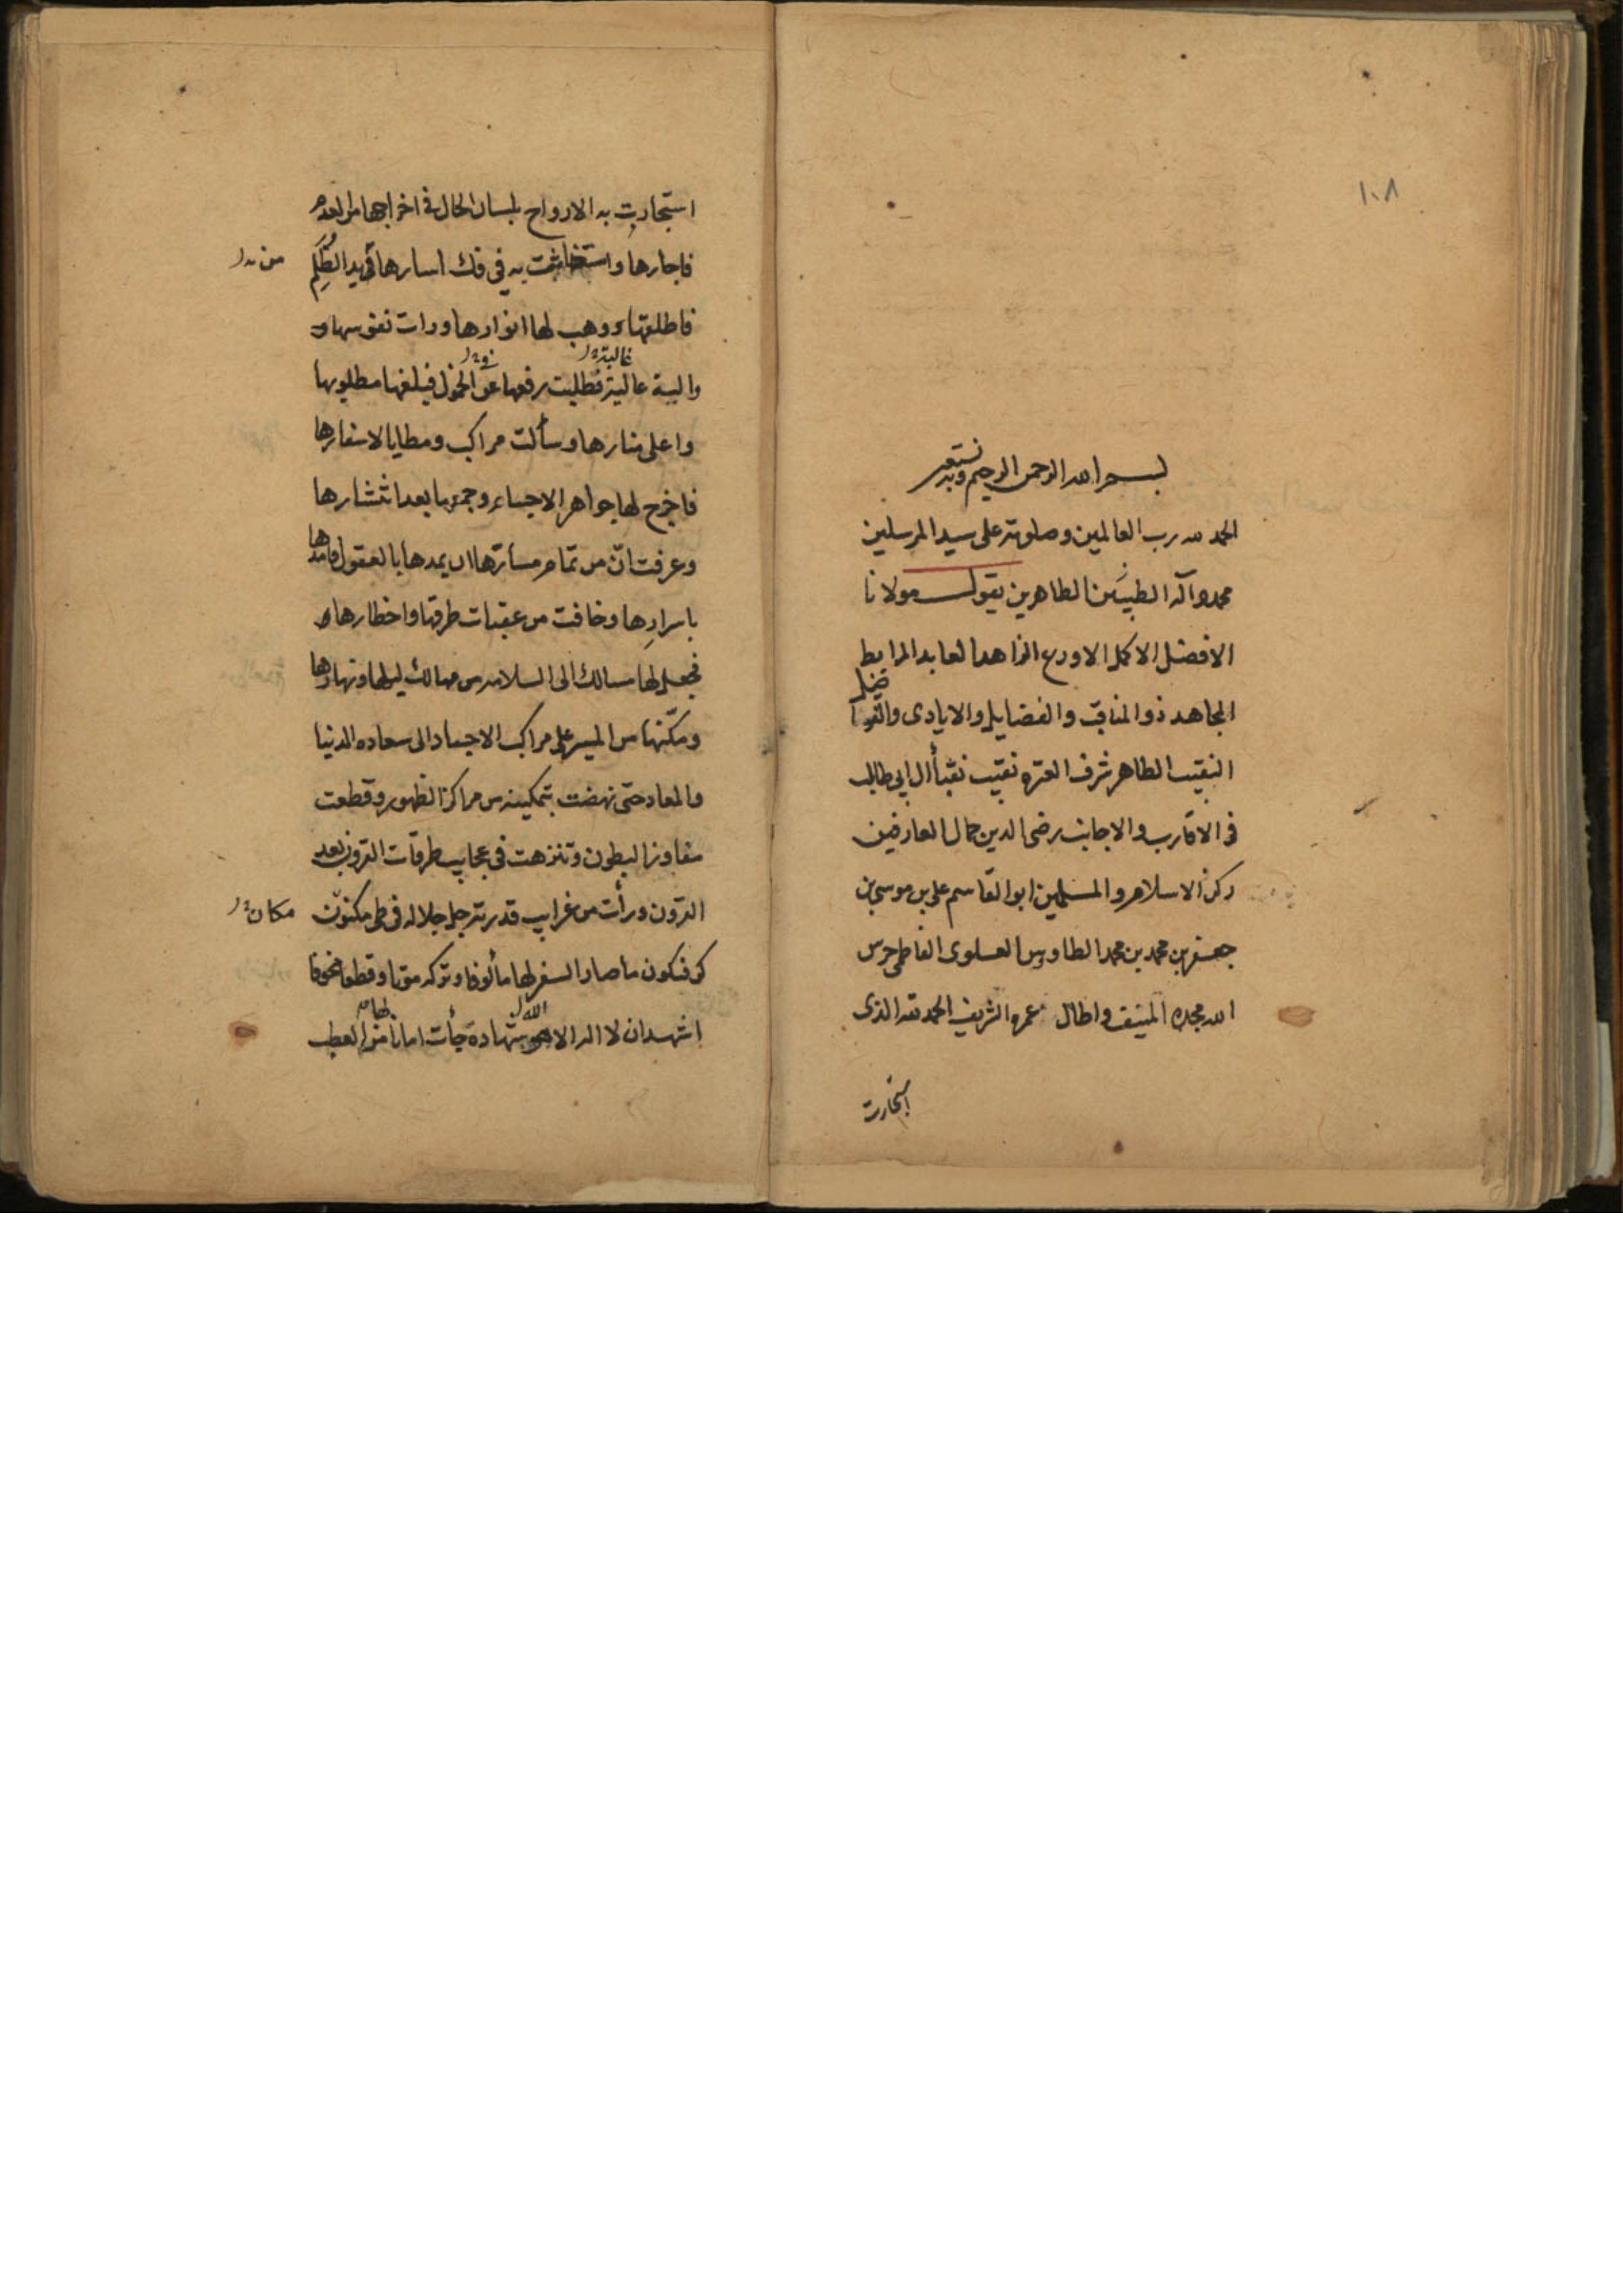 ١٠٨
بسم الله الرحمن الرحيم وبه نستعين
الحمد لله رب العالمين وصلوته على سيد المرسلين
محمد وآله الطيبين الطاهرين يقول مولانا
الافضل الاكمل الاورع الزاهد العابد المرابط
المجاهد ذو المناقب والفضايل والايادى والفواضل
النقيب الطاهر شرف العتره نقيب نقبأ آل ابي طالب
فى الاقارب والاجانب رضى الدين جمال العارفين
ركن الاسلام والمسلمين ابو القاسم على بن موسى بن
جعفر بن محمد بن محمد الطاوس العلوى الفاطمى حرس
الله مجده المنيف واطال عمره الشريف الحمد لله الذى
استجارت
استجارت به الارواح بلسان الحال فى اخراجها من العدم
فاجارها واستغاثت به فى فك اسارها من يد الظلم
من
فاطلقها ووهب لها انوارها ورات نفوسها
والية عالية فطلبت رفعها عن الخمول فبلغها مطلوبها
غالية
واعلى منارها وسألت مراكب ومطايا لاسفارها
فاخرج لها جواهر الاجساد وجمعها بعد انتشارها
وعرفت ان من تمام مسارها ان يمدها بالعقول فامدها
باسرارها وخافت من عقبات طرقها واخطارها
فجعل لها مسالك الى السلامه من مهالك ليلها ونهارها
ومكنها من المسير على مراكب الاجساد الى سعاده الدنيا
والمعاد حتى نهضت بتمكينه من مراكز الظهور وقطعت
مفاوز البطون وتنزهت فى عجايب طرقات القرون بعد
القرون ورأت من غرايب قدرته جل جلاله فى طى مكنون
مكان
كن فيكون ما صار السفر لها مألوفا وتركه موتا وقطعا مخوفا
اشهد ان لا اله الا الله شهادة جأت امانا لها من العطب